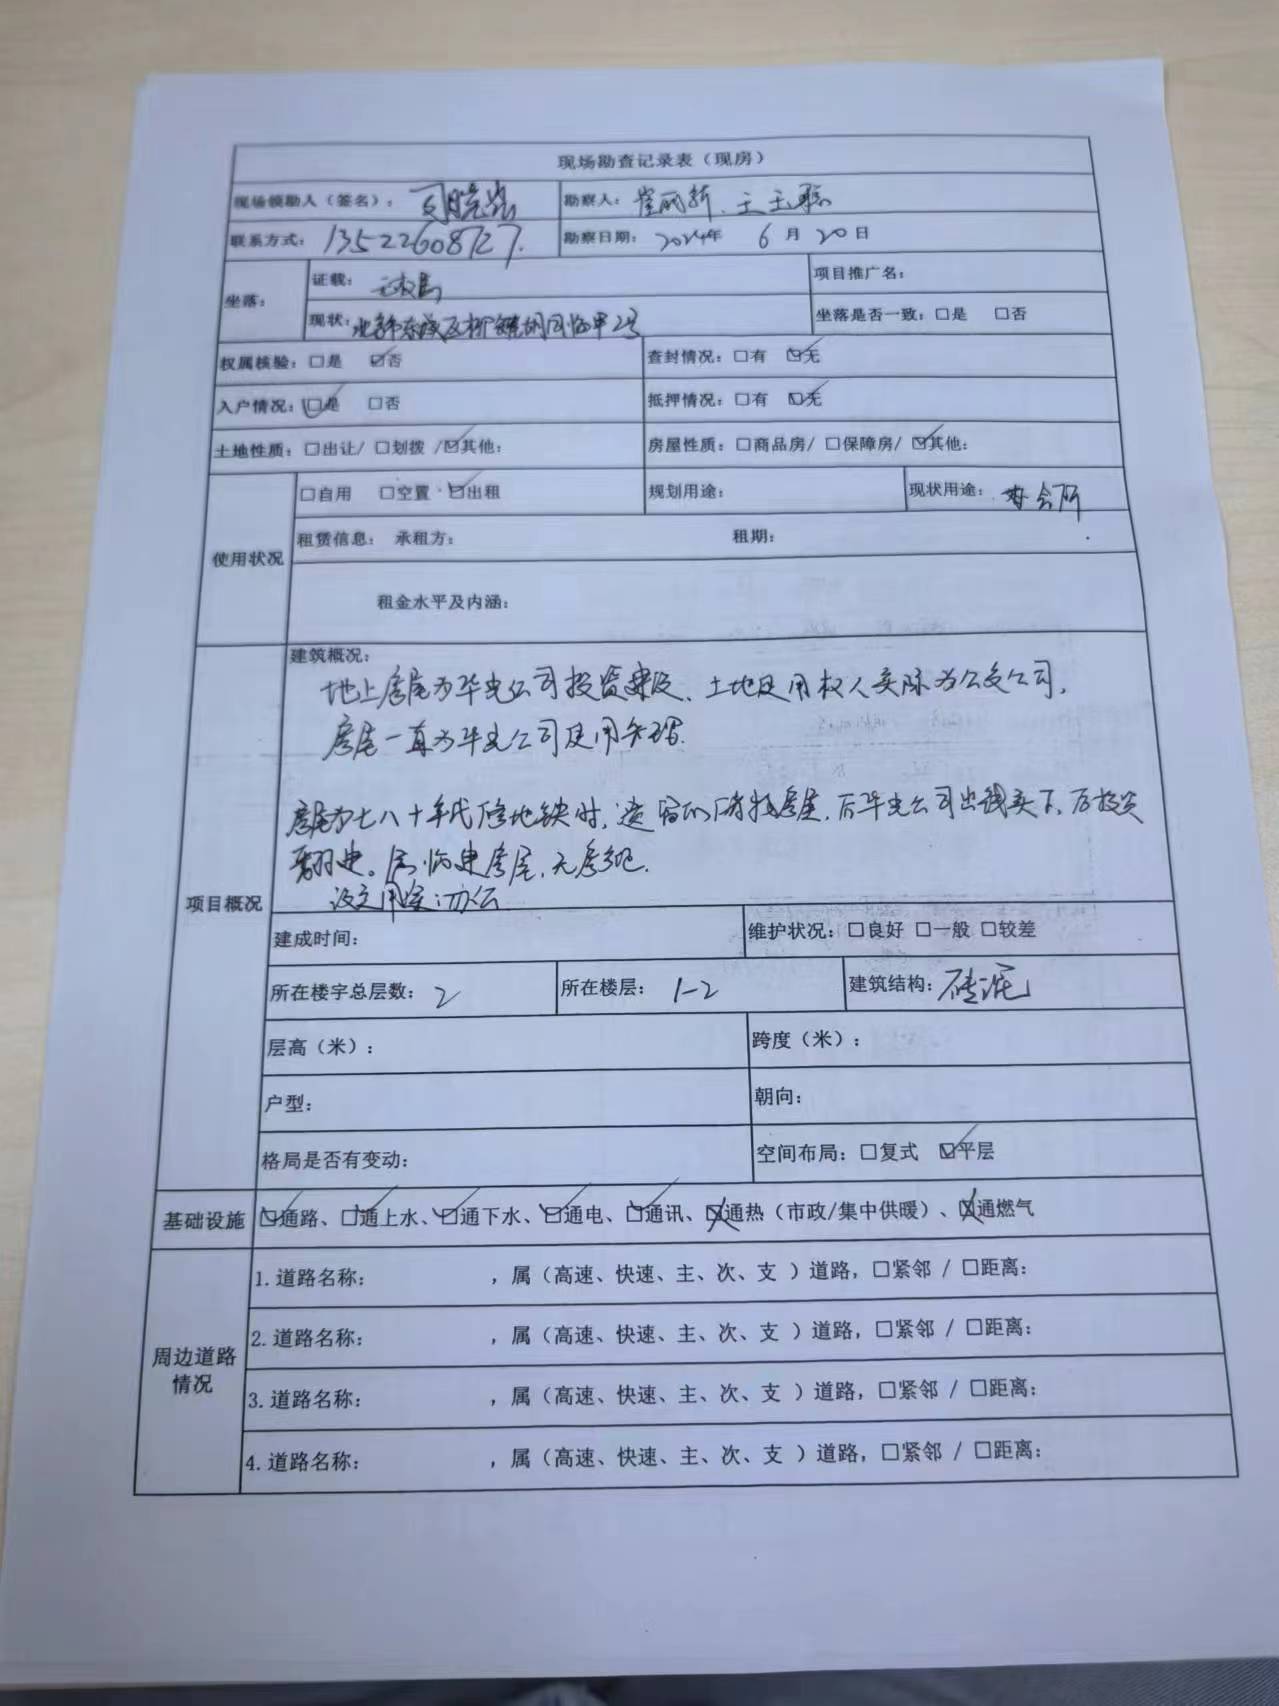 现场勘查记录表（现房）
现场领勘人（签名）： 勘察人：
联系方式：13522608727. 勘察日期：2024年 6月20日
坐落：
证载：无权属 项目推广名：
现状：北京市东城区 胡同临甲2号 坐落是否一致：□是 □否
权属核验：□是 ☑否 查封情况：□有 ☑无
入户情况：☑是 □否 抵押情况：□有 ☑无
土地性质：□出让/ □划拨 /☑其他： 房屋性质：□商品房/ □保障房/ ☑其他：
使用状况
□自用 □空置 ☑出租 规划用途： 现状用途： 会所
租赁信息： 承租方： 租期：
租金水平及内涵：
项目概况
建筑概况：
地上房屋为华 公司投资建设、土地使用权人实际为公交公司，
房屋一直为华 公司使用管理.
房屋为七八十年代修地铁时，遗留的 房屋，后华 公司出钱买下，后投资
翻建。属临建房屋，无房本.
设定用途：办公
建成时间： 维护状况：□良好 □一般 □较差
所在楼宇总层数：2 所在楼层：1-2 建筑结构：砖混
层高（米）： 跨度（米）：
户型： 朝向：
格局是否有变动： 空间布局：□复式 ☑平层
基础设施 ☑通路、☑通上水、☑通下水、☑通电、☑通讯、☒通热（市政/集中供暖）、☒通燃气
周边道路情况
1.道路名称： ，属（高速、快速、主、次、支 ）道路，□紧邻 / □距离：
2.道路名称： ，属（高速、快速、主、次、支 ）道路，□紧邻 / □距离：
3.道路名称： ，属（高速、快速、主、次、支 ）道路，□紧邻 / □距离：
4.道路名称： ，属（高速、快速、主、次、支 ）道路，□紧邻 / □距离：